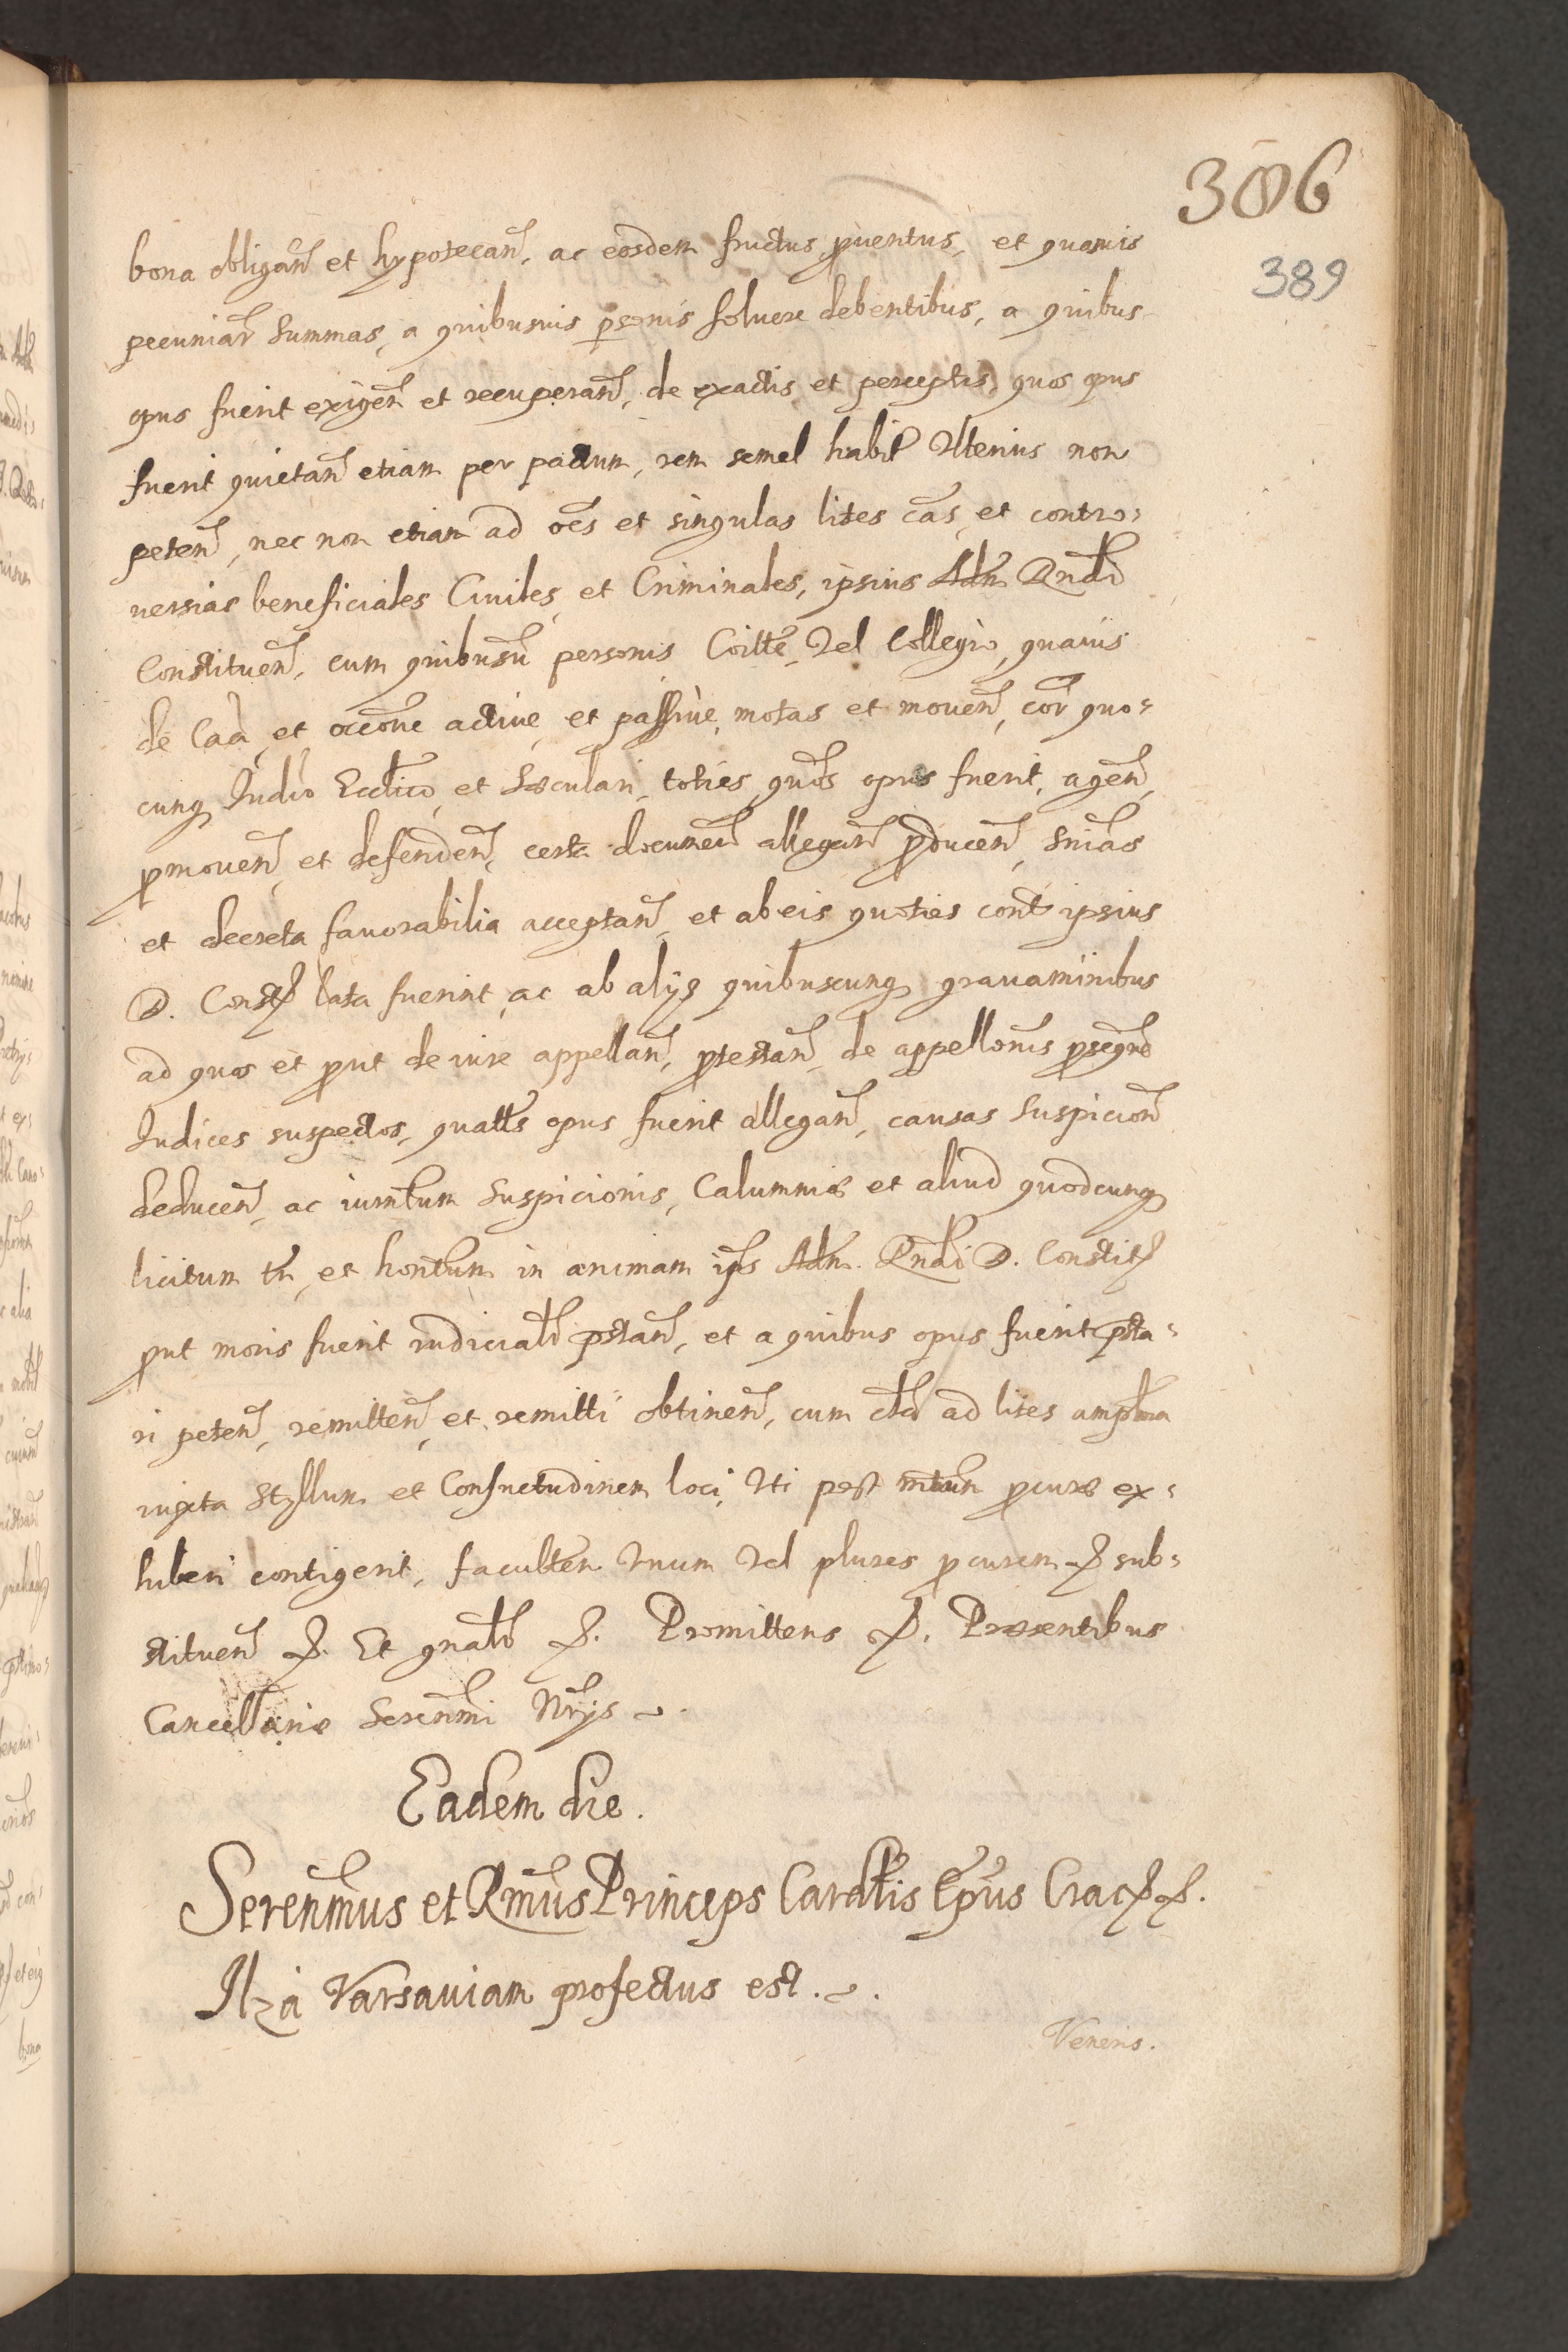 306
389
bona obligan̄ et hypotecan̄, ac eosdem fructus ꝓuentus, et quasuis
pecuniar̄ summas, a quibusuis personis soluere debentibus, a quibus
opus fuerit exigen̄ et recuperan̄, de exactis et perceptis, quos opus
fuerit quietan̄ etiam per pactum, rem semel habit̄ Vlterius non
peten̄, nec non etiam ad oēs et singulas lites cās, et contro⸗
uersias beneficiales Ciuiles, et Criminales, ipsius Adm̄ Rnd̄i
Constituen̄, cum quibusū personis Coītte, Vel Collegio, quauis
de Caā, et occōne actiue, et passiuè, motas et mouen̄, cor̄ quo⸗
cunq Iud̄io Eccl̄ico, et Sæculari, toties, quot̄s opus fuerit, agen̄,
ꝓmouen̄, et defenden̄, certa document̄ allegan̄ ꝓducen̄, sn̄ias
et decreta fauorabilia acceptan̄, et ab eis quoties cont̄ ipsius
D. Constꝭ lata fuerint, ac ab alijs quibuscunq grauaminibus
ad quos et ꝓut de iure appellan̄, ꝓtestan̄, de appellōnis ꝓsequt̄
Iudices suspectos, quatt̄s opus fuerit allegan̄, causas suspicion̄
deducen̄, ac iurm̄tum suspicionis, Calumniæ et aliud quodcunq
licitum tn̄, et hont̄um in animam ip̄s Adm̄. Rnd̄i D. Constitꝭ
ꝓut moris fuerit iudicialr̄ p̄stan̄, et a quibus opus fuerit p̄sta⸗
ri peten̄, remitten̄, et remitti obtinen̄, cum cl̄a ad lites ampl̄ma
iuxta Styllum et Consuetudinem loci, Vti post mt̄um ꝓcuræ ex⸗
hiberi contigerit, facultt̄em Vnum Vel plures ꝓcurem ꝭ sub⸗
stituen̄ ꝭ. Et gnalr̄ ꝭ. Promittens ꝭ. Præsentibus
Cancellariæ Seren̄mi Nrījs.
Eadem die.
Seren̄mus et Rm̄us Princeps Cardl̄is Ep̄us Cracꝭꝭ.
Ilzà Varsauiam profectus est.
Veneris.